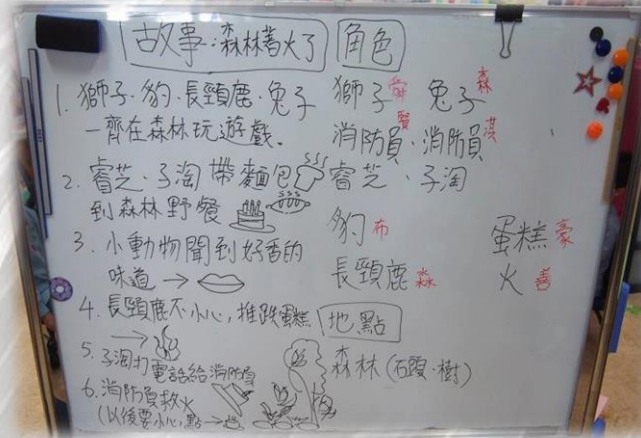 故事:森林著火了
角色
1. 獅子、豹、長頸鹿、兔子
一齊在森林玩遊戲。
2. 睿芝、子淘帶麵包
到森林野餐
3. 小動物聞到好香的
味道→
4. 長頸鹿不小心,推跌蛋糕
→
5. 子淘打電話給消防員
6. 消防員救火
(以後要小心點→
獅子 兔子 森
消防員 賢 消防員 淇
睿芝、子淘
豹 布 蛋糕 豪
長頸鹿 森 火 善
地點
森林(石頭、樹)